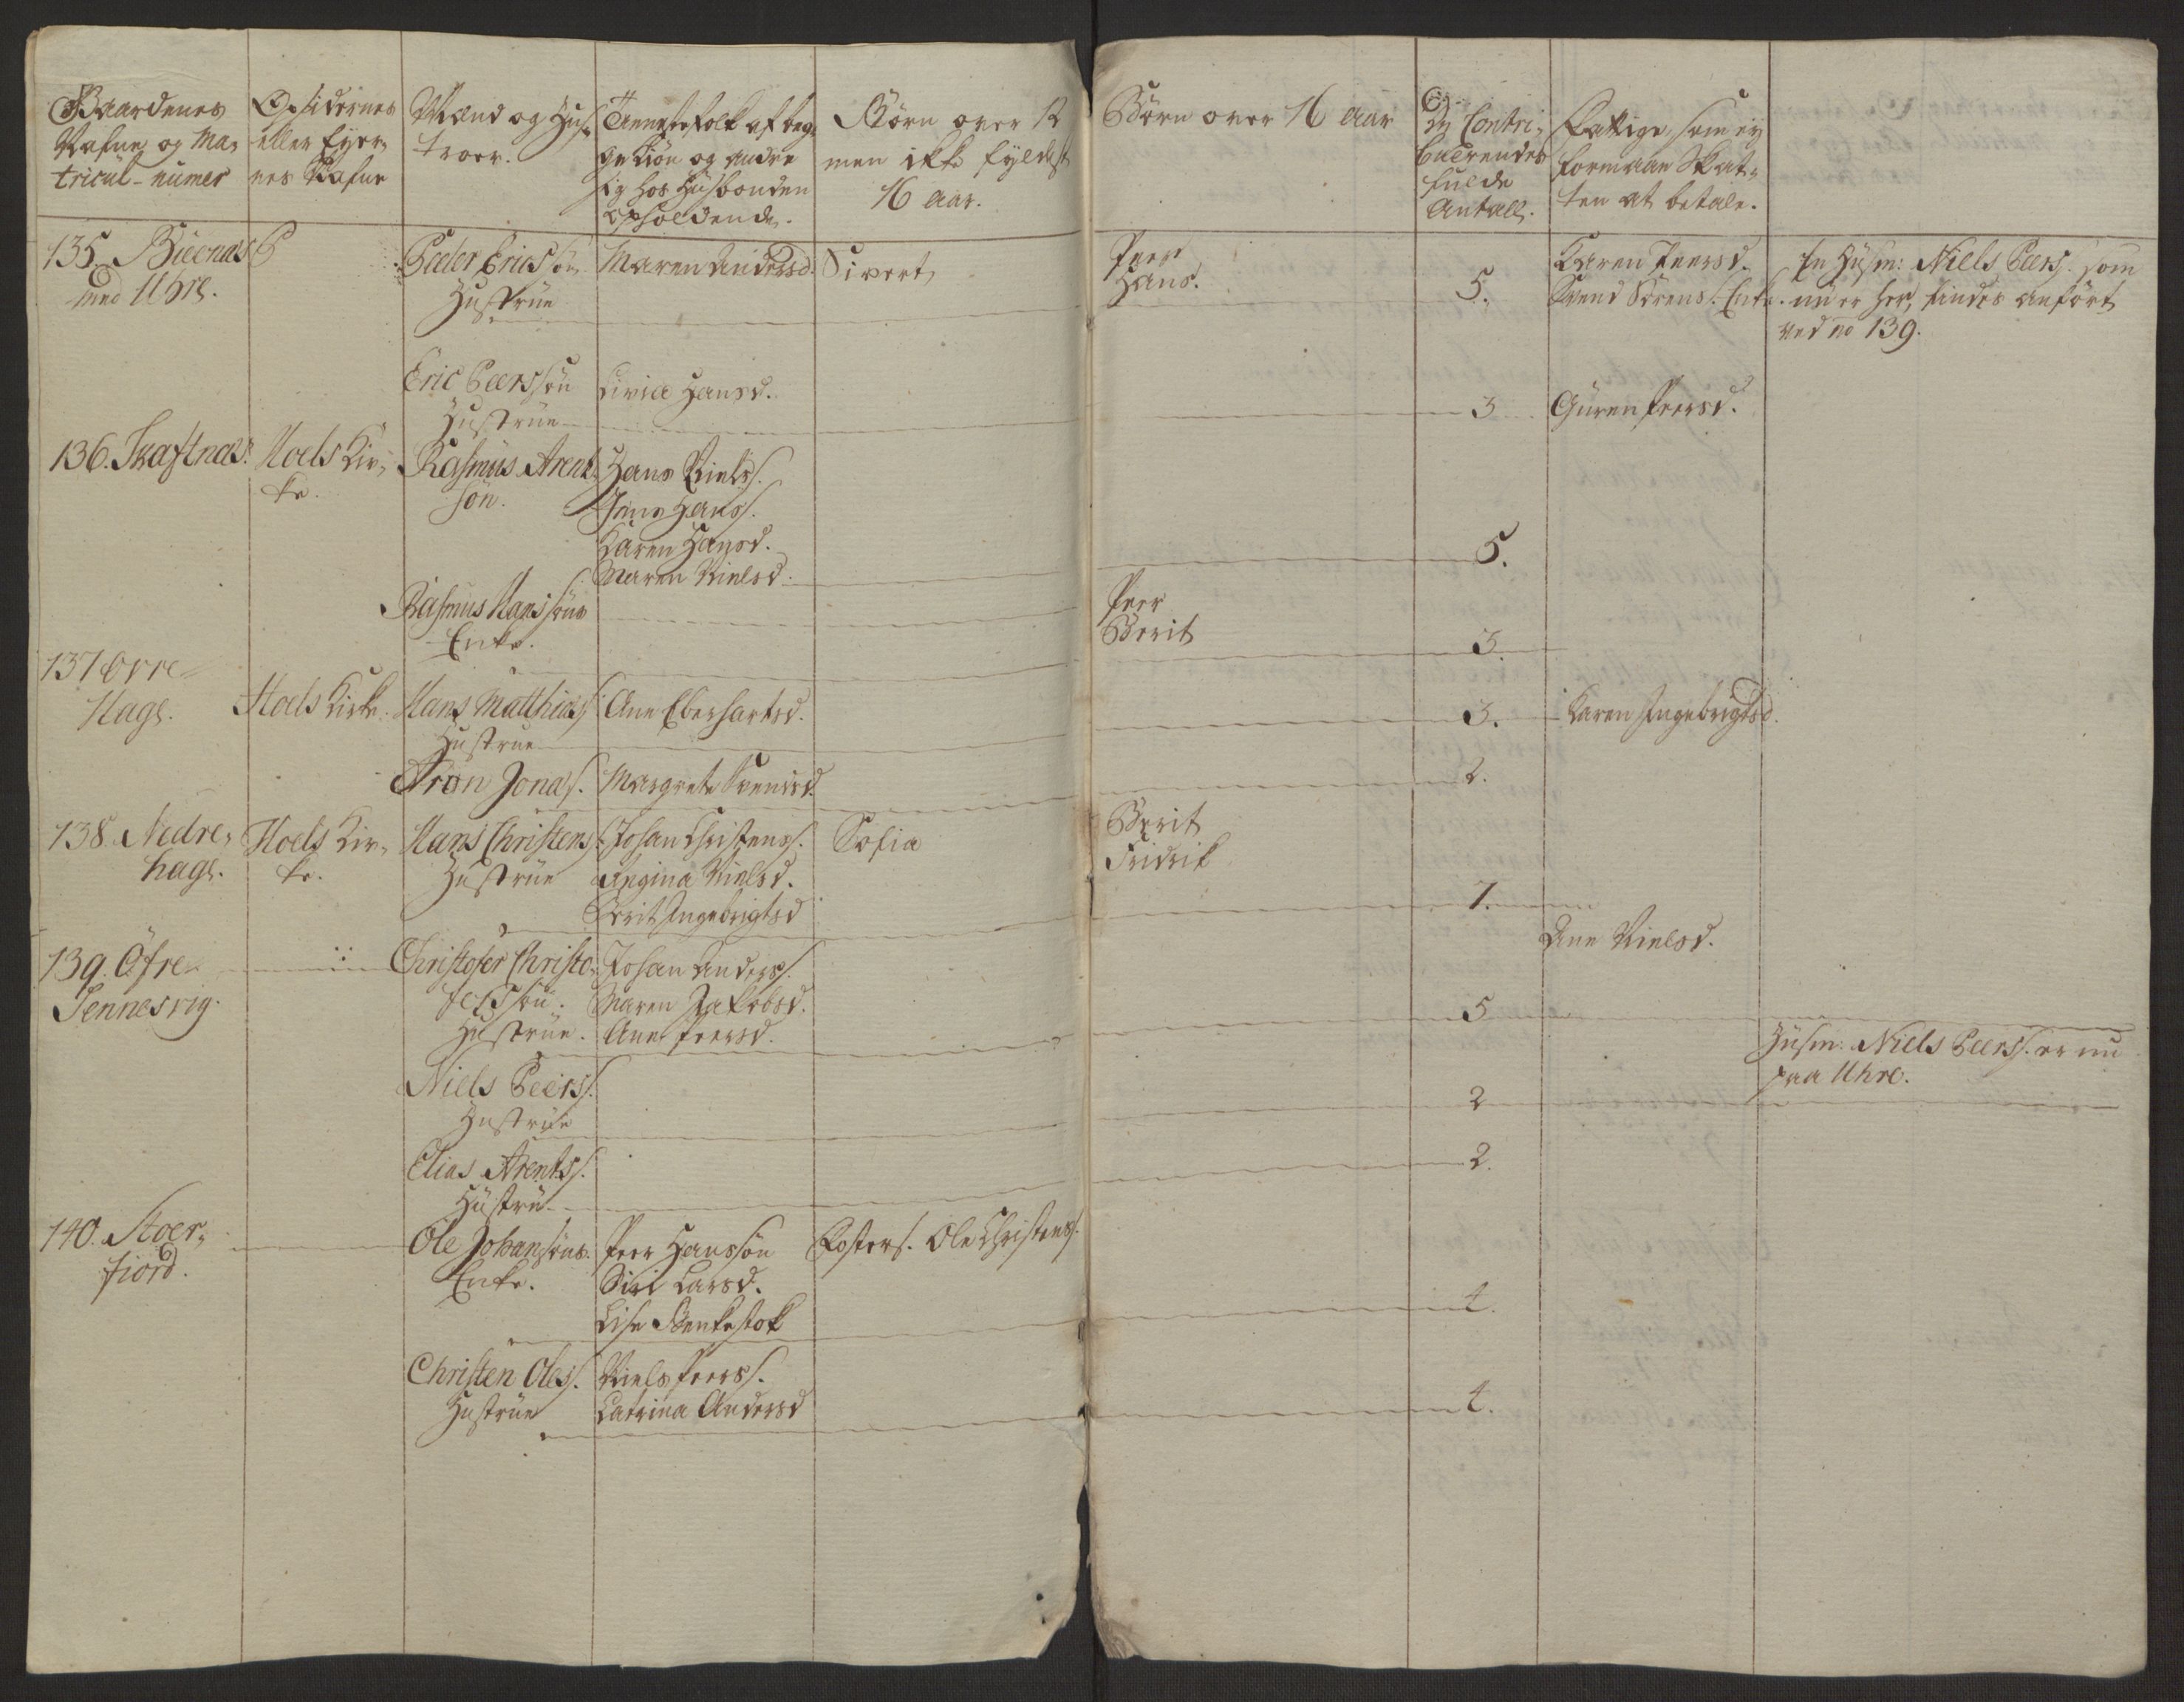 Gaardenes
Nafne og Ma-
tricul-numer
Opsidernes
eller Eyer-
nes Nafne
Mænd og Hus-
troer.
Tienestefolk af beg-
ge Kiøn og andre
sig hos Husbonden
opholdende.
Børn over 12
men ikke fyldest
16 aar.
Børn over 16 aar
De Contri-
buerendes
fulde
Antall.
Fattige, som ey
formaae Skat-
ten at betale.
135. Biornæs
med Uhre.
Peder Ericsøn
Hustrue
Maren Andersd.
Sivert
Peer
Hans.
5.
Karen Peersd.
Svend Sørens. Enke.
En Husm: Niels Peers. som
nu er her, findes anført
ved no 139.
Eric Peersøn
Hustrue
Livia Hansd.
3
Guren Peersd.
136. Skaftnæs.
Hoels Kir-
ke.
Rasmus Arent-
søn.
Hans Niels.
Jens Hans.
Karen Hansd.
Maren Nielsd.
5.
Rasmus Hanssøns
Enke.
Peer
Berit
3.
137 Øvre
Hage.
Hoels Kirke.
Hans Matthias.
Hustrue
Ane Ebertsartsd.
3.
Karen Ingebrigtsd.
Aron Jonas.
Margrete Svensd.
2.
138. Nedre-
hage.
Hoels Kir-
ke.
Hans Christens.
Hustrue
Johan Christens.
Regina Nielsd.
Berit Ingebrigtsd
Sofia
Berit
Fridrik
7.
Ane Nielsd.
139. Öfre
Sennesvig.
Christofer Christo-
fersøn.
Hustrue.
Johan Anders.
Maren Jakobsd.
Ane Peersd.
5
Husm. Niels Peers. er nu
paa Uhre.
Niels Peers.
Hustrue
2
Elias Arents.
Hustru
2.
140. Stoer-
fiord.
Ole Johansøns
Enke.
Peer Hanssøn
Siri Larsd.
Lise Benkestok
Fosters. Ole Christens.
4.
Christen Oles.
Hustrue
Niels Peers.
Catrina Andersd
4.